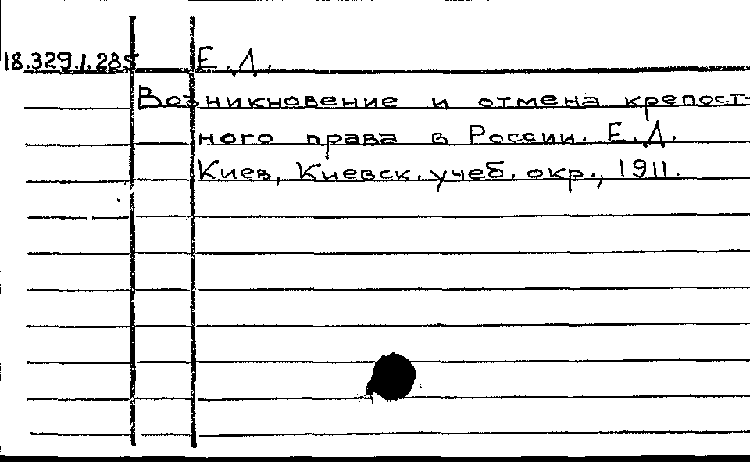 18.329.1.285 Е.Д.
Возникновение и отмена крепост-
ного права в России. Е.Д.
Киев, Киевск. учеб. окр., 1911.